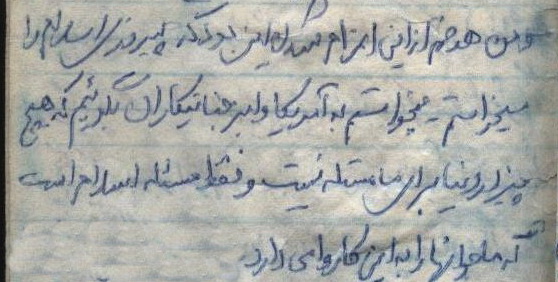 ومن هدفم از این اعزام شدن این بود که پیروزی اسلام را
میخواستم - میخواستم به آمریکا و ابرجنایتکاران بگوئیم که هیچ
چیز از دنیا برای ما مسئله نیست و فقط مسئله اسلام است
که ما جوانها را به این کار وامی دارد.